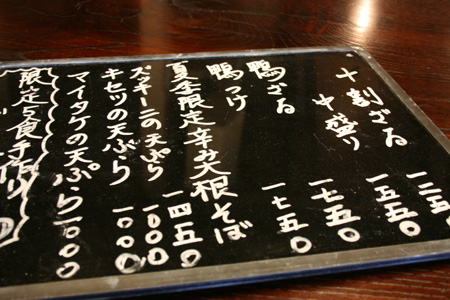 十割ざる 一二五〇
中盛り 一五五〇
鴨ざる 一七五〇
鴨つけ 一七五〇
夏季限定辛み大根そば 一四五〇
ズッキーニの天ぷら 一〇〇〇
キセツの天ぷら 一〇〇〇
マイタケの天ぷら 一〇〇〇
限定5食手作り